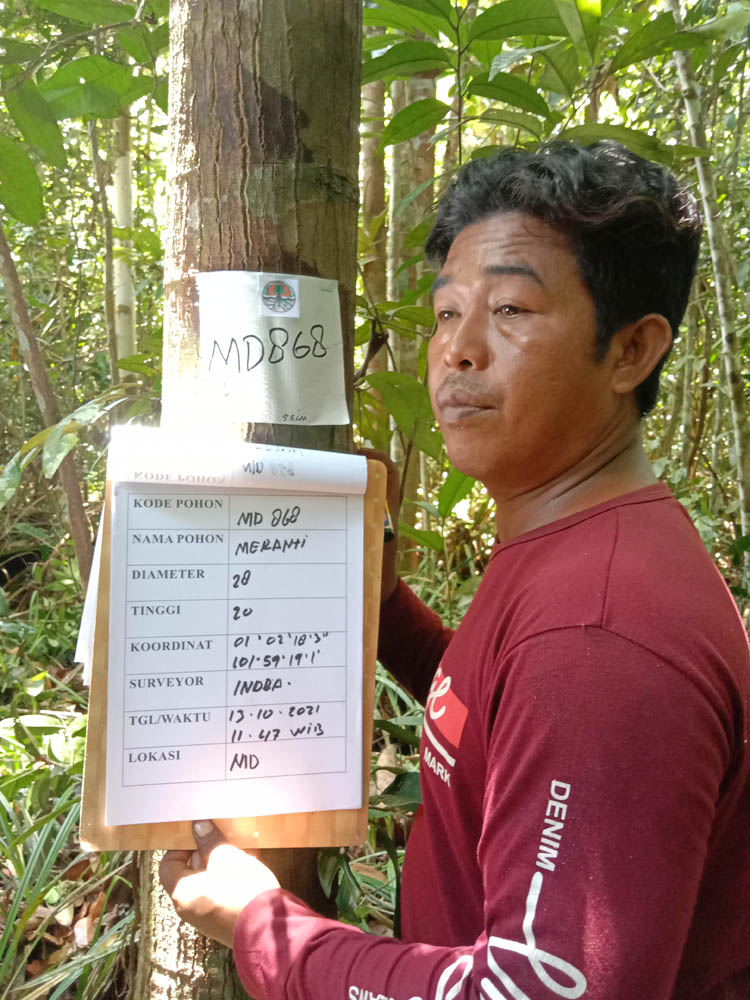 MD868
KODE POHON MD 868
NAMA POHON MERANTI
DIAMETER 28
TINGGI 20
KOORDINAT 01°02'18.3"
101°59'19.1'
SURVEYOR INDRA.
TGL/WAKTU 13.10.2021
11.47 WIB
LOKASI MD
MARK
DENIM